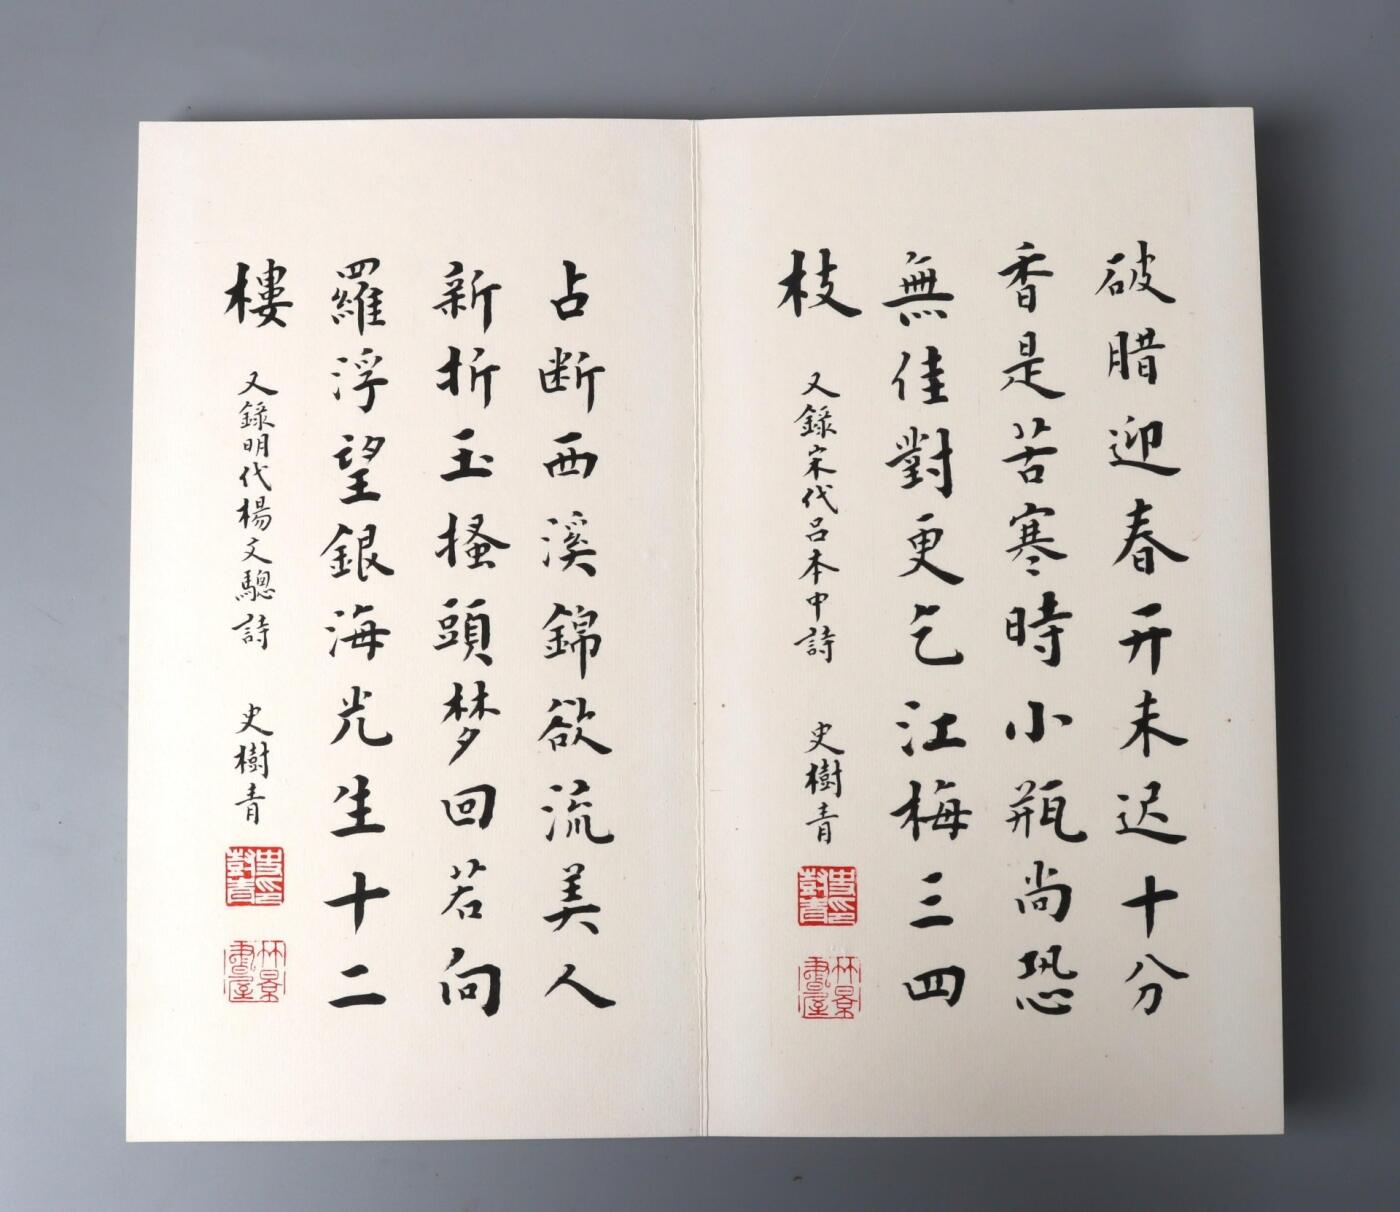 破腊迎春开未迟十分
香是苦寒時小瓶尚恐
無佳對更乞江梅三四
枝
又錄宋代呂本中詩 史樹青
史樹青印
竹景書屋
占断西溪錦欲流美人
新折玉搔頭梦回若向
羅浮望銀海光生十二
樓
又錄明代楊文驄詩 史樹青
史樹青印
竹景書屋